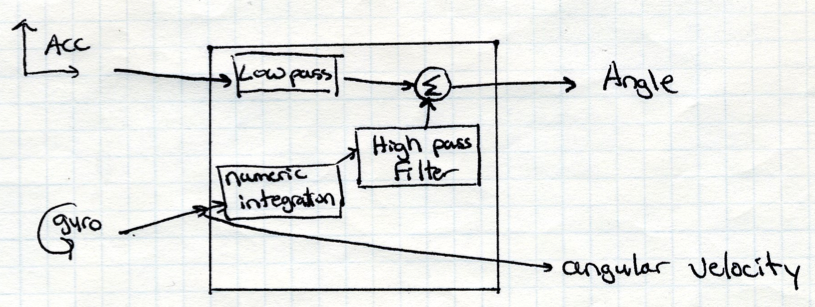 Acc
Low pass
Σ
Angle
High pass
Filter
numeric
integration
gyro
angular velocity